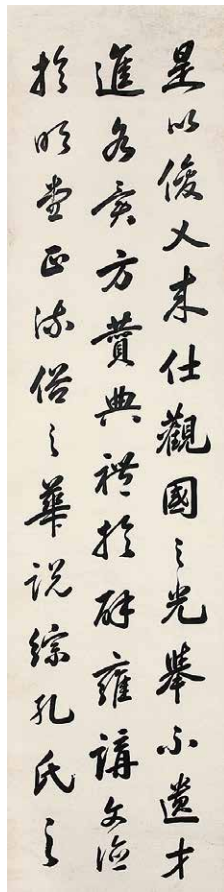 是以俊乂来仕觀國之光舉不遺才
進各異方贊典禮於辟雍講文德
於明堂正流俗之華說綜孔氏之